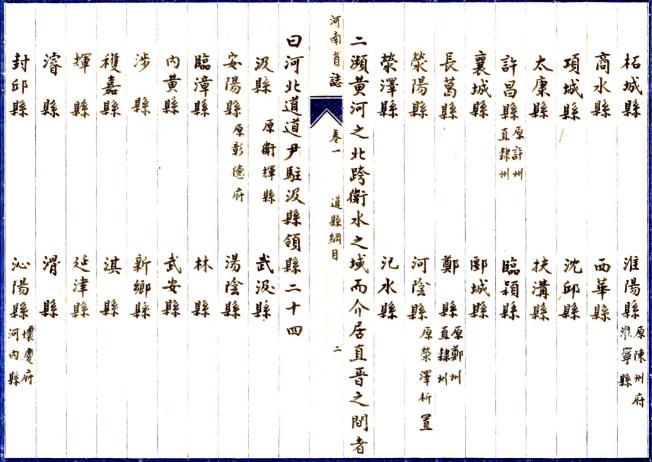 柘城縣 淮陽縣 原陳州府淮寧縣
商水縣 西華縣
項城縣 沈邱縣
太康縣 扶溝縣
許昌縣 原許州直隸州 臨潁縣
襄城縣 郾城縣
長葛縣 鄭縣 原鄭州直隸州
滎陽縣 河陰縣 原滎澤析置
滎澤縣 汜水縣
二瀕黃河之北跨衛水之域而介居直晉之間者
河南省誌 卷一 道縣綱目 二
曰河北道道尹駐汲縣領縣二十四
汲縣 原衛輝縣 武汲縣
安陽縣 原彰德府 湯陰縣
臨漳縣 林縣
內黃縣 武安縣
涉縣 新鄉縣
獲嘉縣 淇縣
輝縣 延津縣
濬縣 滑縣
封邱縣 沁陽縣 壞慶府河內縣